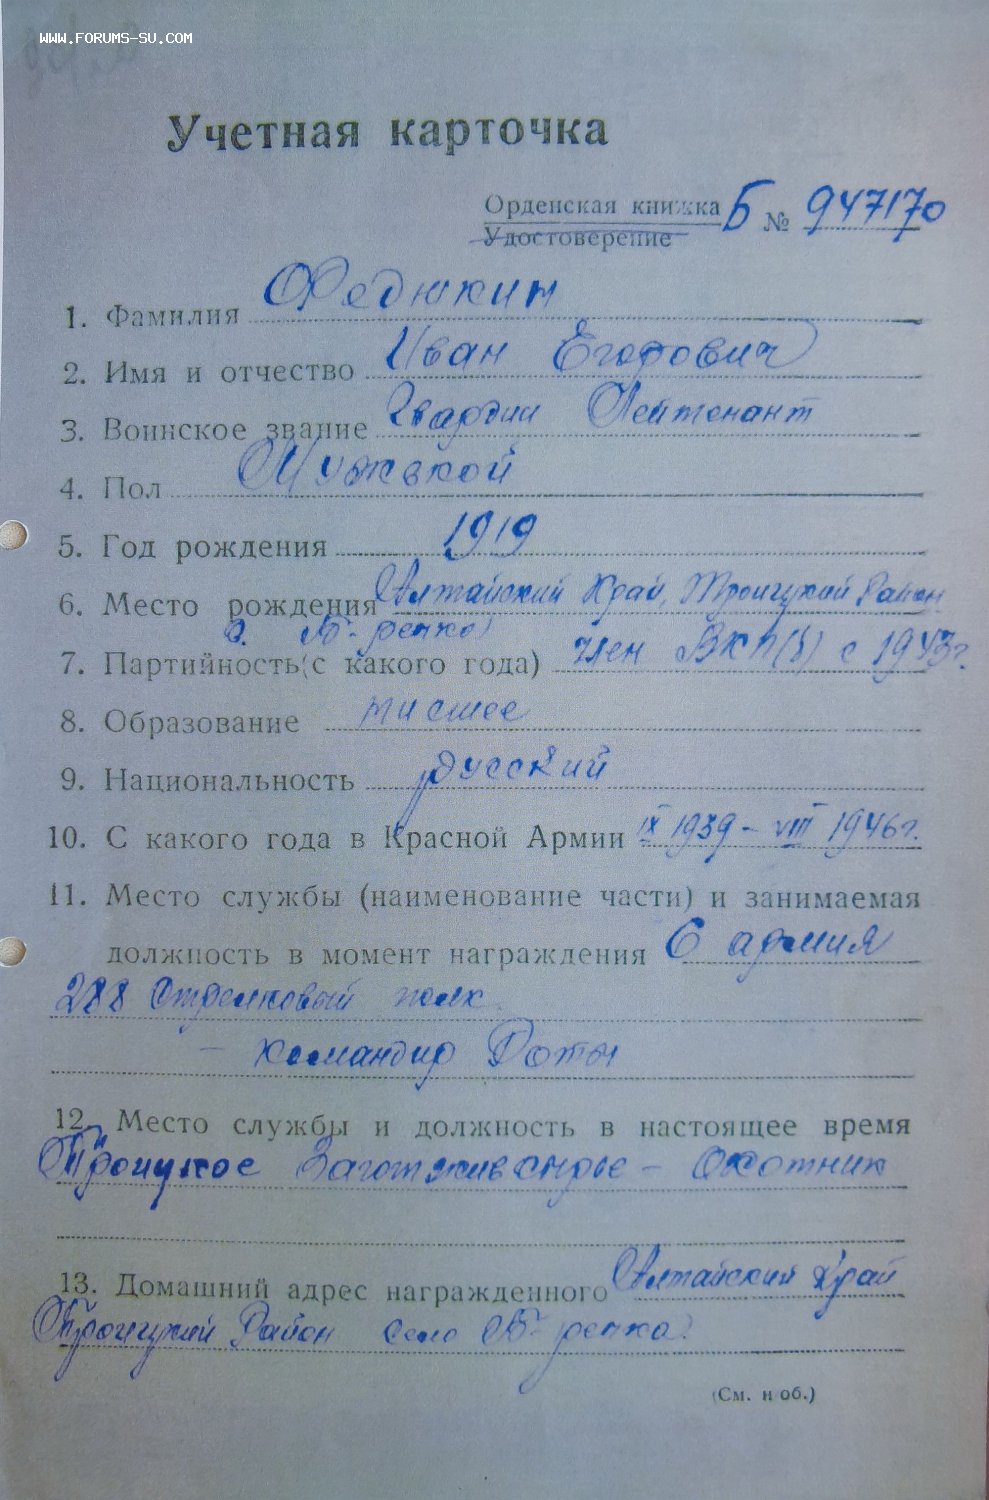 www.forums-su.com
Учетная карточка
Орденская книжка Б № 947170
Удостоверение
1. Фамилия Федюкин
2. Имя и отчество Иван Егорович
3. Воинское звание Гвардии Лейтенант
4. Пол Мужской
5. Год рождения 1919
6. Место рождения Алтайский Край, Троицкий Район
с. Б-речка
7. Партийность (с какого года) член ВКП(б) с 1943г.
8. Образование низшее
9. Национальность русский
10. С какого года в Красной Армии IX 1939 - VIII 1946г.
11. Место службы (наименование части) и занимаемая
должность в момент награждения 6 армия
288 Стрелковый полк
- командир Роты
12. Место службы и должность в настоящее время
Троицкое Заготживсырье - Охотник
13. Домашний адрес награжденного Алтайский Край
Троицкий Район село Б-речка
(См. н об.)